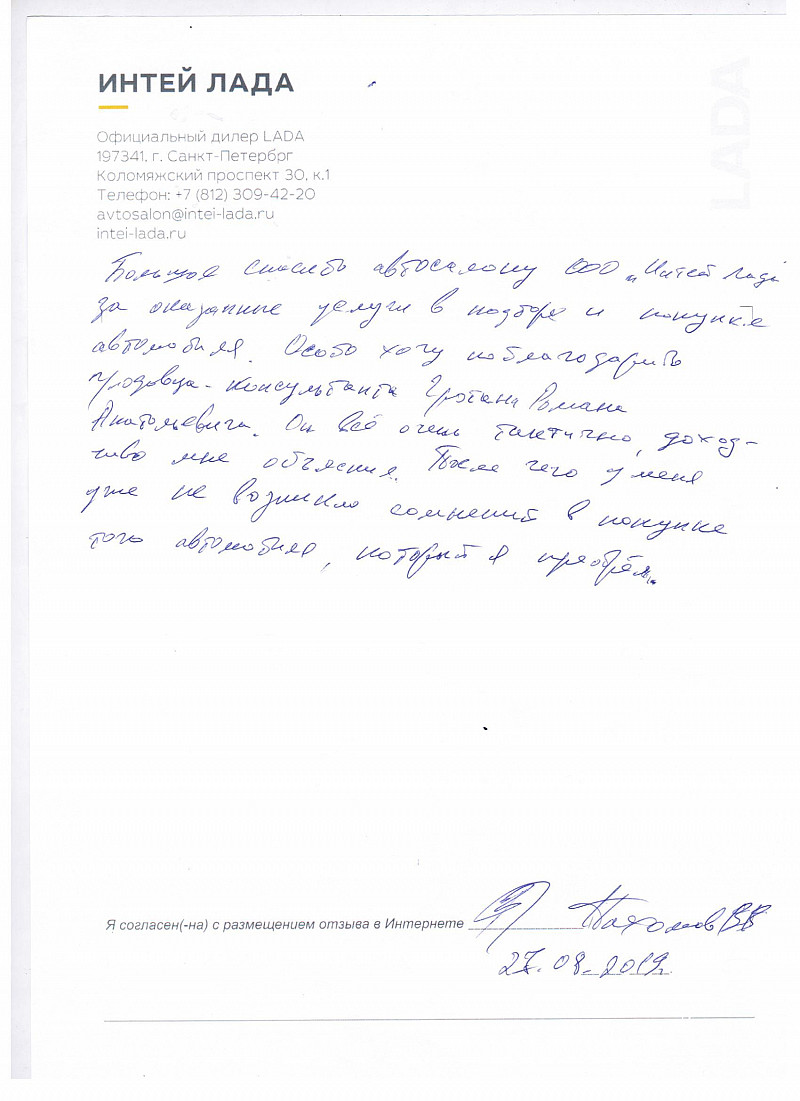 ИНТЕЙ ЛАДА
LADA
Официальный дилер LADA
197341, г. Санкт-Петербрг
Коломяжский проспект 30, к.1
Телефон: +7 (812) 309-42-20
avtosalon@intei-lada.ru
intei-lada.ru
Большое спасибо автосалону ООО "Интей Лада
за оказанные услуги в подборе и покупке
автомобиля. Особо хочу поблагодарить
продавца-консультанта Романа
Анатольевича. Он всё очень тактично, доход-
чиво мне объяснил. После чего у меня
уже не возникло сомнений в покупке
того автомобиля, который я приобрёл.
Я согласен(-на) с размещением отзыва в Интернете Пахомов ВВ
27.08.2019